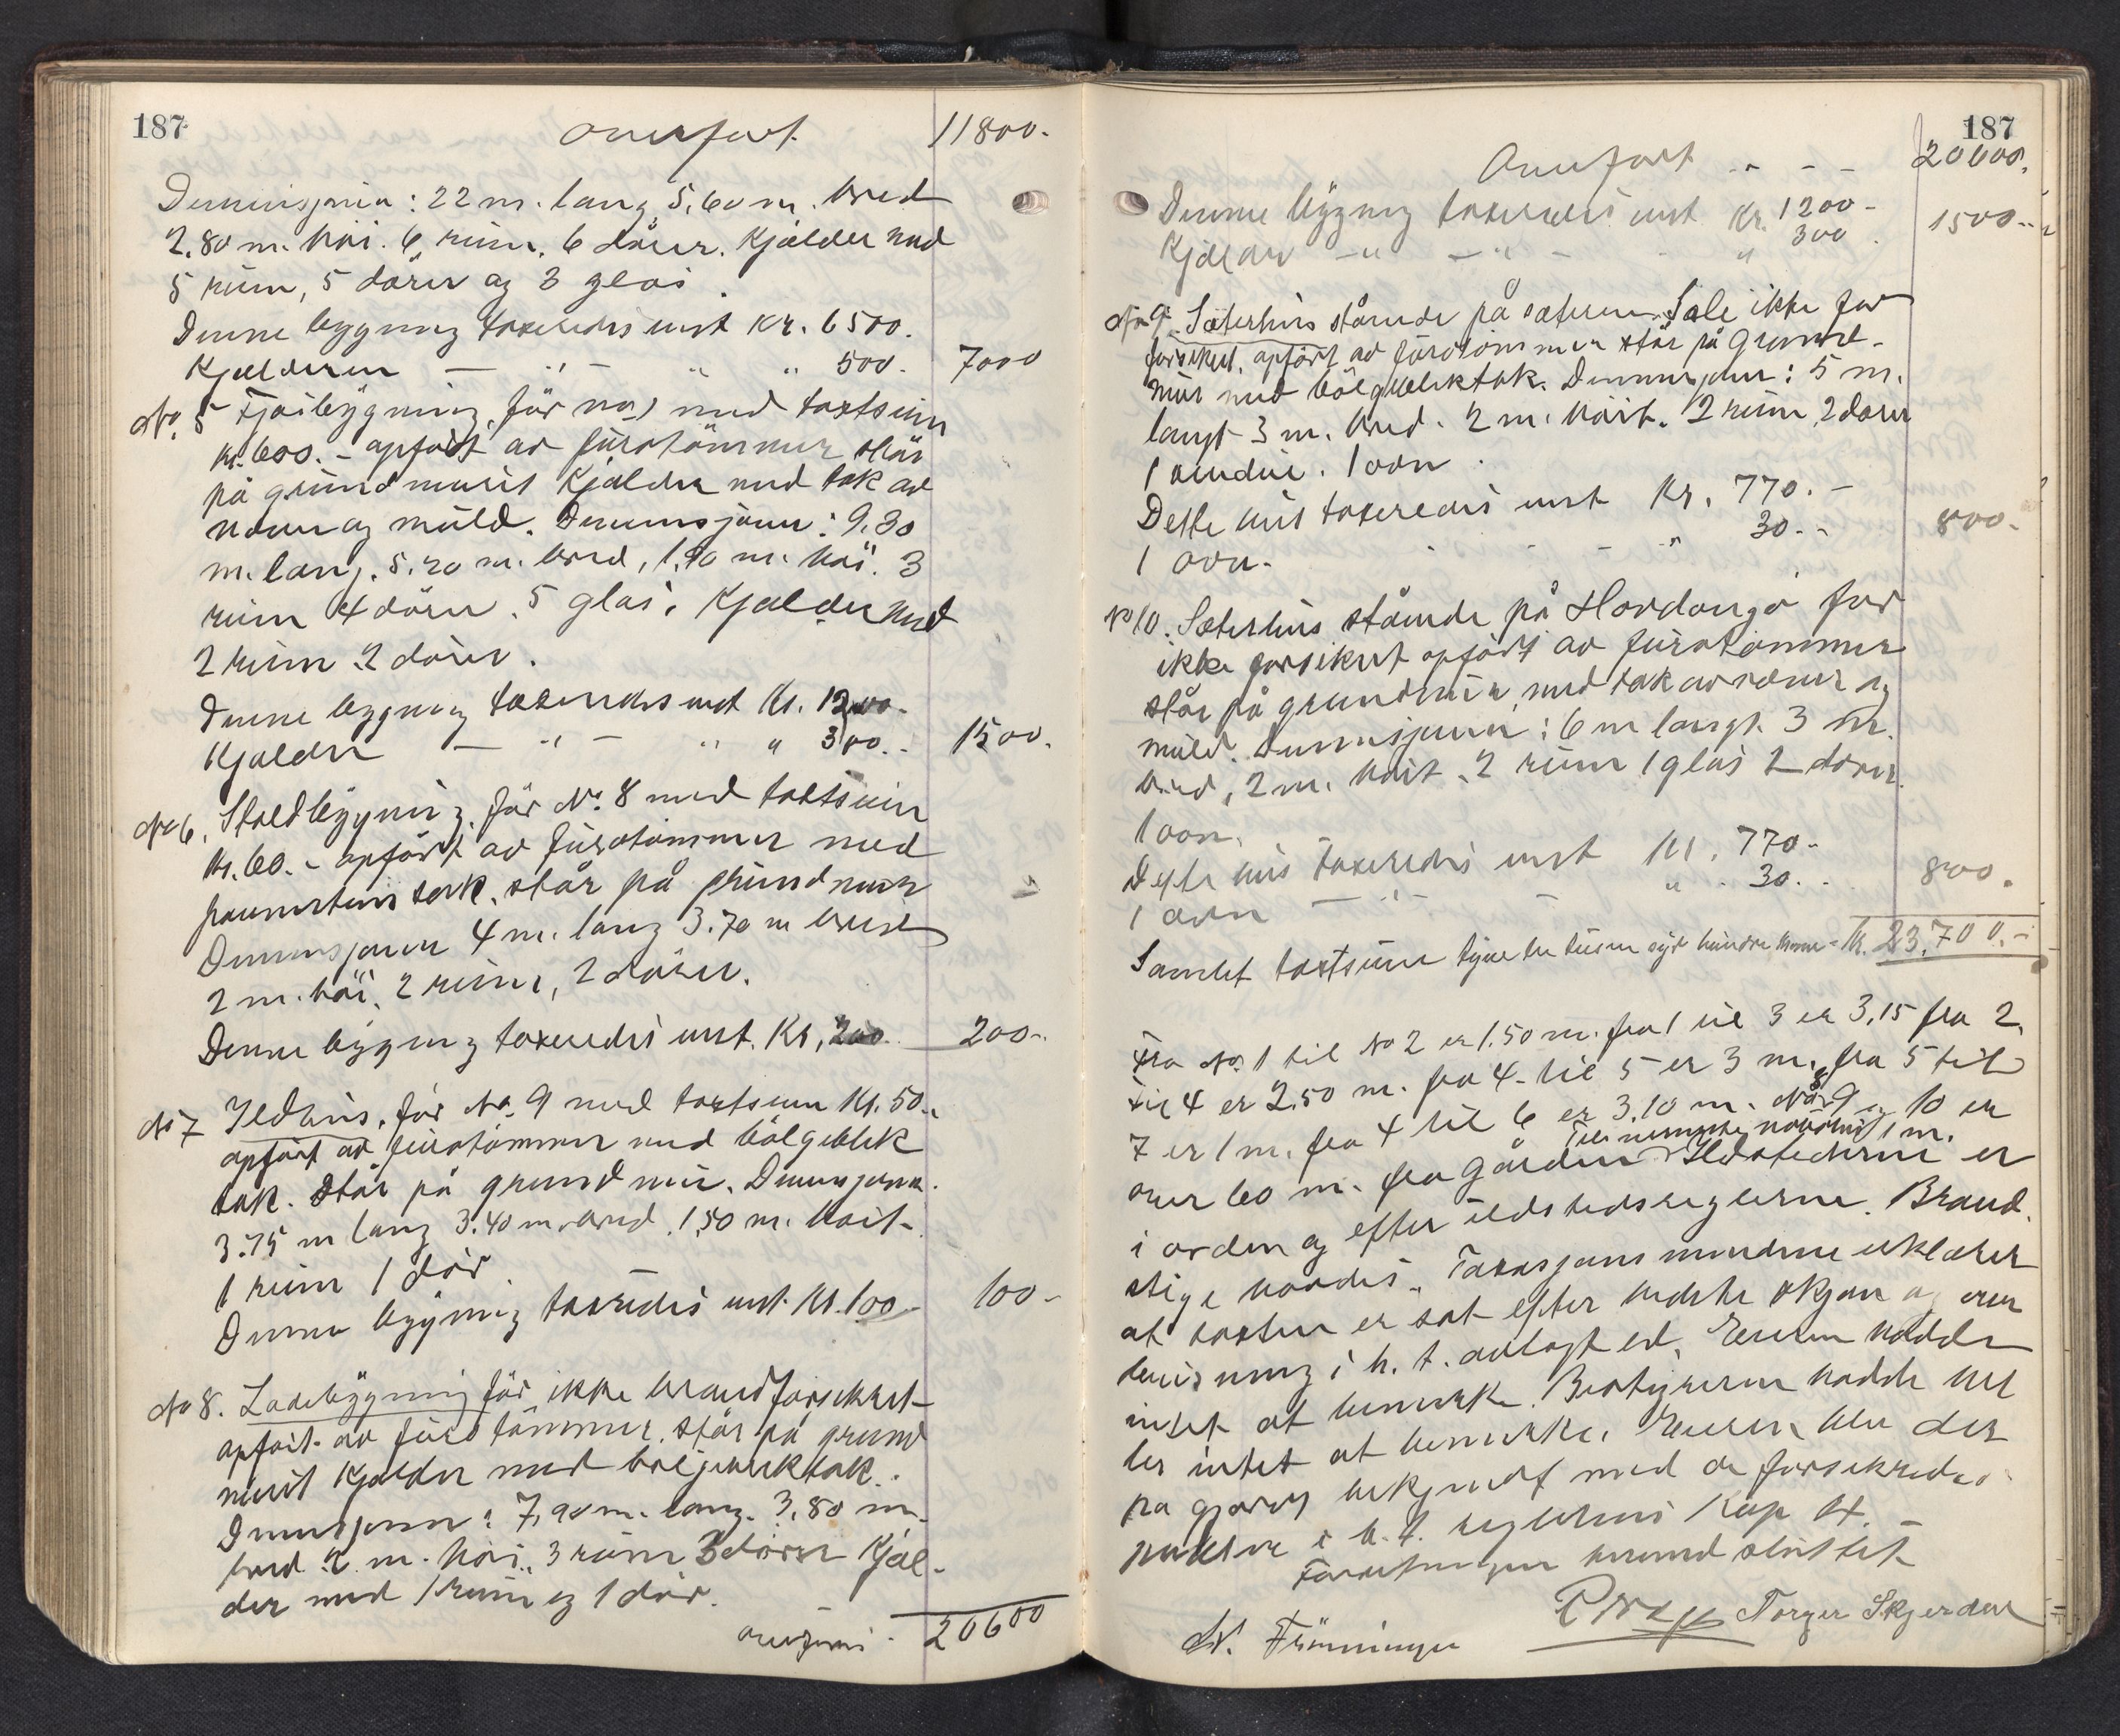 187
Overført 11800.-
Dimmisjoner: 22 m. lang, 5,60 m. bred
2.80 m. høi. 6 rum. 6 dörer. Kjælder med
5 rum, 5 dörer og 3 glas.
Denne bygning taxeredes mst Kr. 6500.
Kjælderen — " — " " 500. 7000
No. 5 Fjøsbygning før no 7 med taxtsum
kr. 600.- opført av furotömmer står
på grundmurit Kjælder med tak av
næver og muld. Dimmsjoner: 9.30
m. lang. 5.20 m. bred, 1.90 m. høi. 3
rum 4 dörer. 5 glas. Kjælder med
2 rum 2 dörer.
Denne bygning taxeredes mst Kr. 1200.-
Kjælder — " — " " 300.- 1500.
No 6. Staldbygning. før No. 8 med taxtsum
kr. 60.- opført av furotömmer med
pannestens tak. står på grundmur
Dimmsjoner 4 m. lang 3.70 m bred
2 m. høi. 2 rum, 2 dörer.
Denne bygning taxeredes mst. Kr. 200. 200-.
No 7 Ildhus. før No. 9 med taxtsum Kr. 50.-
opført av furotömmer med bölgeblek
tak. Står på grundmur. Dimmsjoner.
3.75 m lang 3.40 m bred. 1,50 m. høit-
1 rum 1 dör.
Denne bygning taxeredes mst. Kr. 100- 100-
No 8. Ladebygning før ikke brandforsikret-
opført- av furotömmer. står på grund
murit Kjælder med bølgeblektak.
Dimmsjoner: 7,90 m. lang. 3.80 m.
bred 2 m. høi. 3 rum 3 dörer Kjæl-
der med 1 rum og 1 dör.
overføres. 20600
187
Overført - - - 20600.
Denne bygning taxeredes mst Kr. 1200- 1500.-
Kjælder —"— —"— " 300.
No 9. Sæterhus stående på sæteren Sale ikke før
forsikret. opført av furotömmer står på grund-
mur med bölgeblektak. Dimmsjoner: 5 m.
langt 3 m. bred. 2 m. høit. 2 rum, 2 dörer
1 vindu. 1 ovn.
Dette hus taxeredes mst Kr. 770.-
1 ovn. - - - " 30.- 800.-
No 10. Sæterhus stående på Hordanga før
ikke forsikret opført av furotömmer
står på grundmur, med tak av næver og
muld. Dimmsjoner: 6 m langt. 3 m.
bred, 2 m. høit. 2 rum 1 glas 2 dörer
1 ovn.
Dette hus taxeredes mst Kr. 770.-
1 ovn —"— — " 30.- 800.
Samlet taxtsum tyve tre tusen syv hundre kroner - Kr. 23.700.-
Fra No. 1 til No 2 er 1.50 m. fra 1 til 3 er 3,15 fra 2
til 4 er 2.50 m. fra 4 til 5 er 3 m. fra 5 til
7 er 1 m. fra 4 til 6 er 3.10 m. No 8, 9 og 10 er
Til nærmeste nabohus 1 m.
over 60 m. fra gården. Ildstederne er
i orden og efter ildstedsreglerne. Brand.
stige haves. Taxasjons mendene erklærer
at taxten er sat efter bedste skjøn og over
bevisning i h. t. avlagt ed. Eieren hadde
intet at bemerke. Bestyreren hadde hel
ler intet at bemerke. Eieren blev der
på gjort bekjendt med de forsikredes
pakter i h. t. reglernes Kap 4.
Forretningen dermed sluttet
N. Frønningen Torger Skjerdal